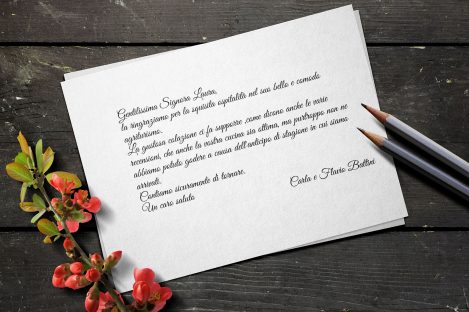 Gentilissima Signora Laura,
la ringraziamo per la squisita ospitalità nel suo bello e comodo
agriturismo.
La gustosa colazione ci fa supporre ,come dicono anche le varie
recensioni, che anche la vostra cucina sia ottima, ma purtroppo non ne
abbiamo potuto godere a causa dell'anticipo di stagione in cui siamo
arrivati.
Contiamo sicuramente di tornare.
Un caro saluto
Carla e Flavio Battini